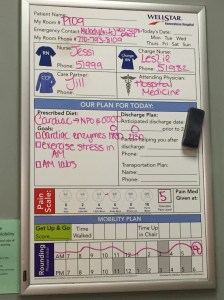 Patient Name:
My Room # P109
WELLSTAR
Emergency Contact
Today's Date:
Mon Tues Wed
Thur Fri Sat
Sun
My Phone # 770-793-8109
Nurse:
Jessi
Phone
51999
Charge Nurse:
Leslie
Phone
51932
Care Partner:
Jill
Phone:
Attending Physician:
Hospital
Medicine
OUR PLAN FOR TODAY:
Prescribed Diet:
Cardiac → NPO @ 0000
Goals:
□ Cardiac enzymes
□ exercise stress in
AM
□ AM labs
Discharge Plan:
Anticipated discharge date
prior to
Helping you after
discharge:
Phone:
Transportation Plan:
Phone:
Pain
Scale:
5
Pain Med
Given at:
MOBILITY PLAN
Get Up & Go
Score
Time
Walked
Time Up
in Chair
Rounding
AM 7 8 9 10 11 12 1 2 3 4 5 6
PM 7 8 9 10 11 12 1 2 3 4 5 6